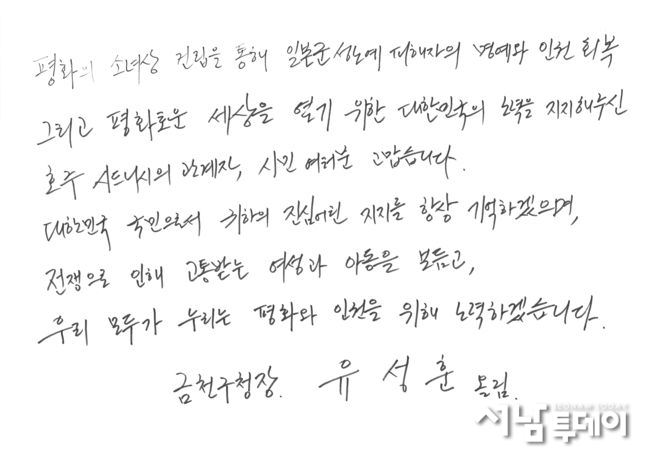 평화의 소녀상 건립을 통해 일본군성노예 피해자의 명예와 인권 회복
그리고 평화로운 세상을 열기 위한 대한민국의 노력을 지지해주신
호주 시드니시의 관계자, 시민 여러분 고맙습니다.
대한민국 국민으로서 귀하의 진심어린 지지를 항상 기억하겠으며,
전쟁으로 인해 고통받는 여성과 아동을 보듬고,
우리 모두가 누리는 평화와 인권을 위해 노력하겠습니다.
금천구청장. 유성훈 올림.
SEONAM TODAY
서남투데이